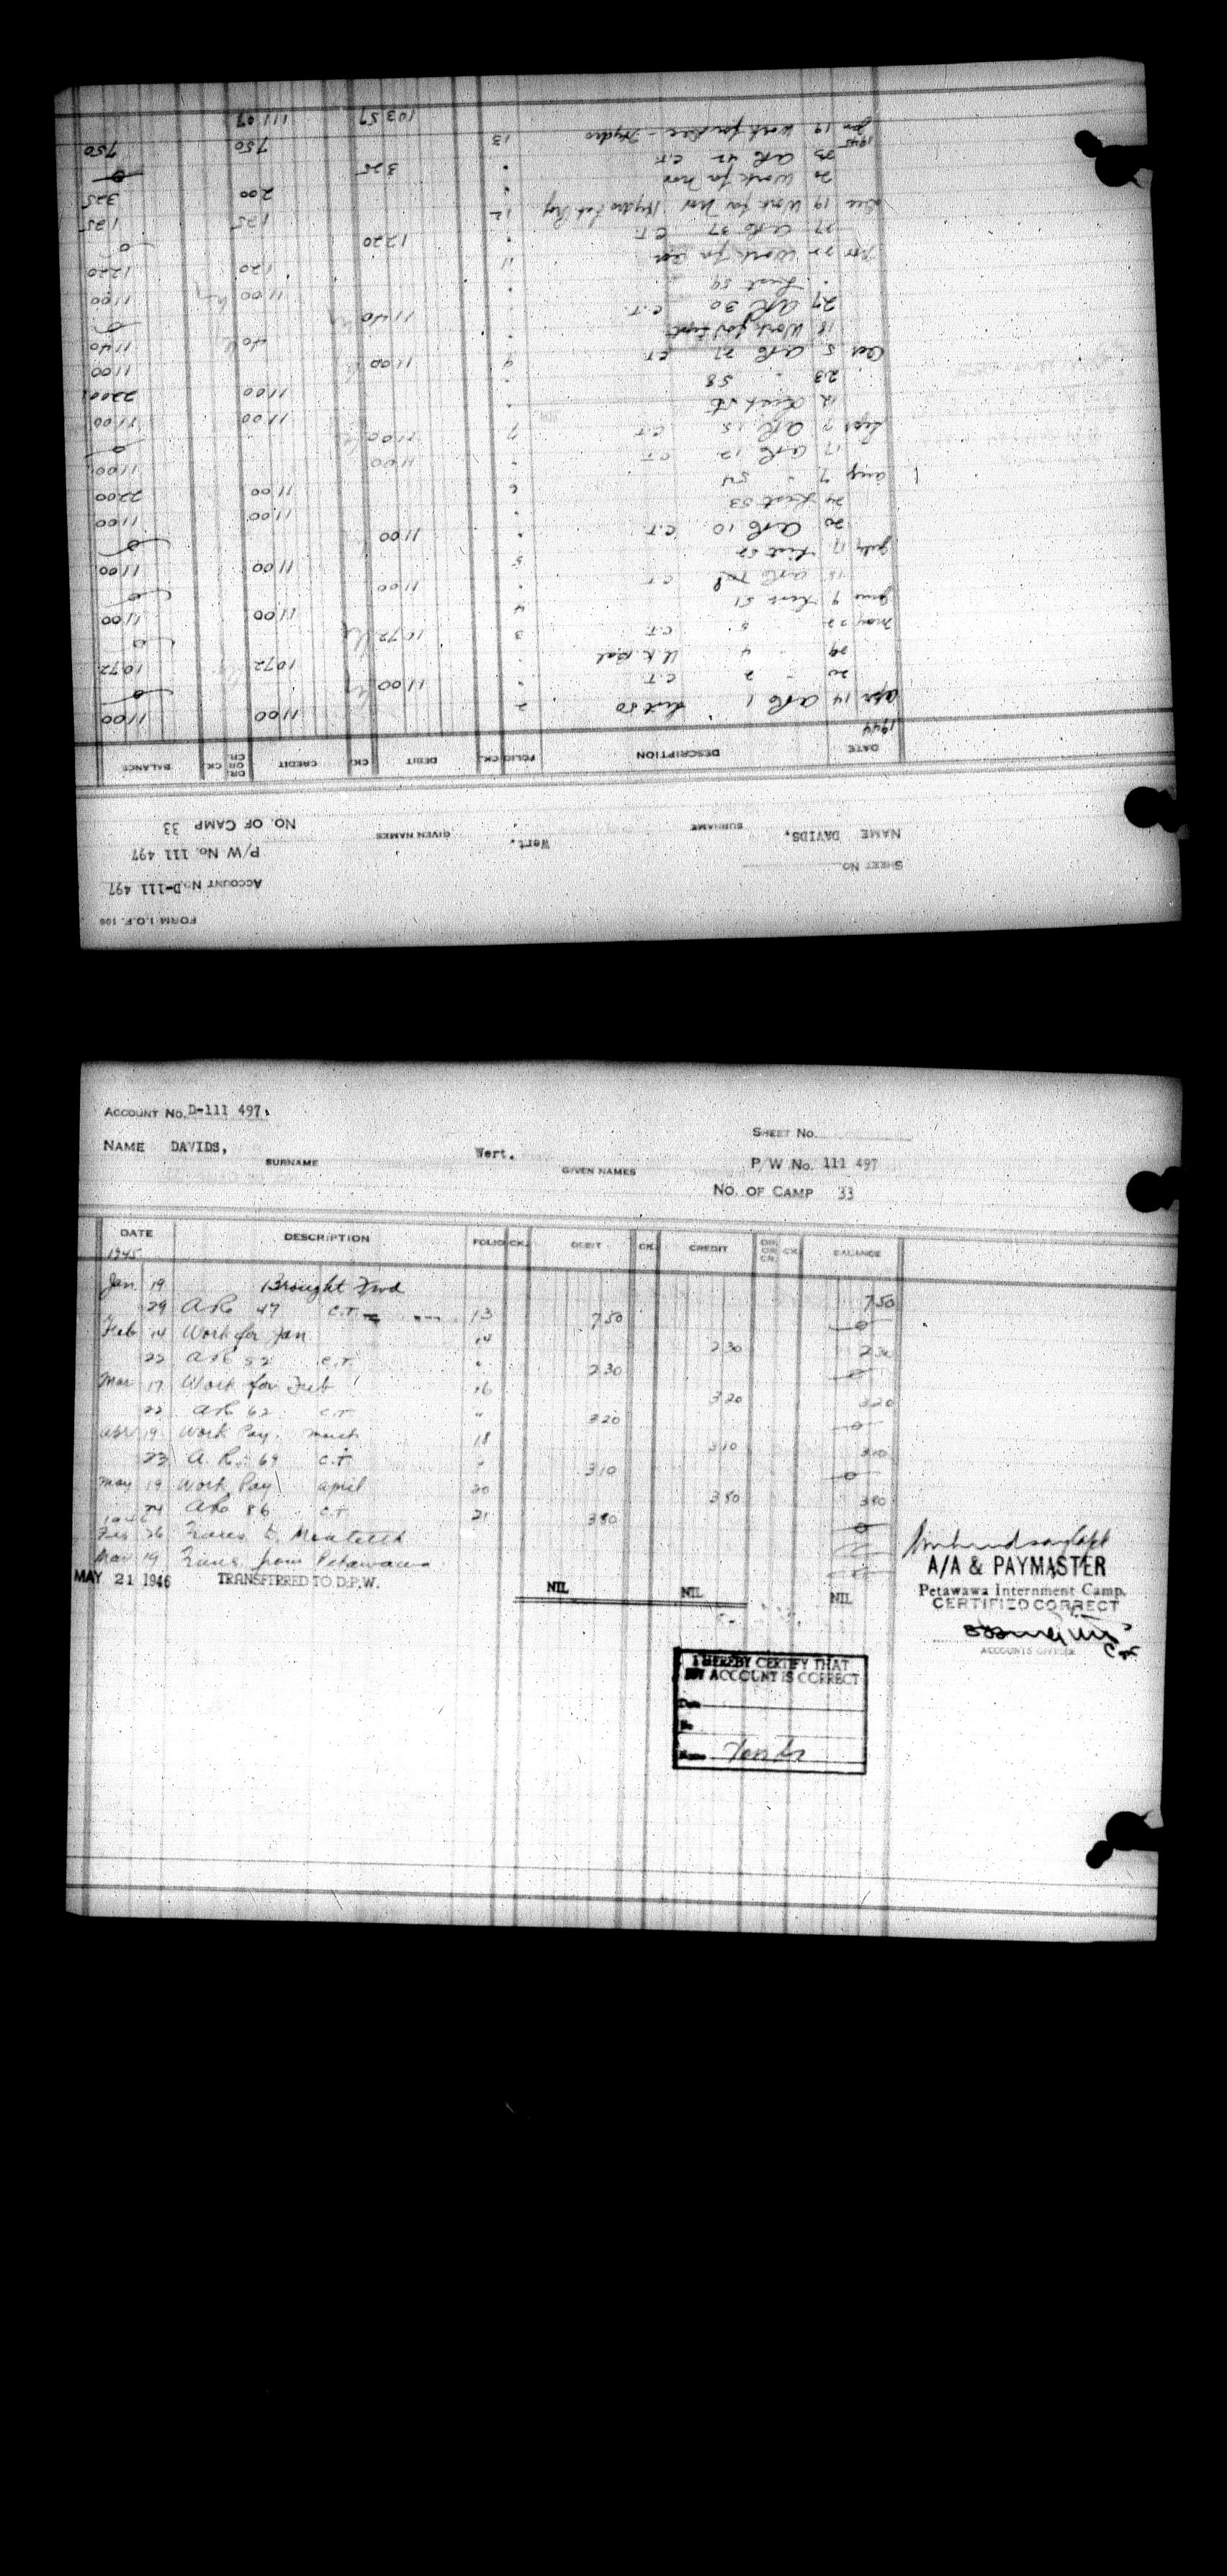 FORM I.O.F. 100
ACCOUNT No. D-111 497
SHEET No.
P/W No. 111 497
NAME DAVIDS, Wert. NO. OF CAMP 33
SURNAME GIVEN NAMES
DATE DESCRIPTION FOLIO CK. DEBIT CK. CREDIT DR. OR CR. CK. BALANCE
1944
Apr 14 AR 1 List 50 2 11 00 11 00
20 " 2 C.T. " 11 00 0
29 " 4 U.K. Bal " 10 72 10 72
May 22 " 5 C.T. 3 10 72 0
June 9 List 51 4 11 00 11 00
15 C.T. " 11 00 0
July 17 List 52 5 11 00 11 00
20 AR 10 C.T. " 11 00 0
24 List 53 " 11 00 11 00
Aug 7 " 54 6 11 00 22 00
17 AR 12 C.T. " 11 00 11 00
Sept 7 AR 15 C.T. 7 11 00 0
12 List " 11 00 11 00
23 " 58 " 11 00 22 00
Oct 5 AR 27 C.T. 9 11 00 11 00
18 Work for Sept " 40 11 40
27 AR 30 C.T. " 11 40 0
" List 59 " 11 00 11 00
Nov 22 Work for Oct 11 1 20 12 20
27 AR 37 C.T. " 12 20 0
Dec 19 Work for Nov Hydro 12 1 25 1 25
20 Work for Nov " 2 00 3 25
23 AR 42 C.T. " 3 25 0
1945
Jan 19 Work for Dec - Hydro 13 7 50 7 50
103 57 111 07
ACCOUNT No. D-111 497.
SHEET No.
NAME DAVIDS, Wert.
SURNAME GIVEN NAMES
P/W No. 111 497
NO. OF CAMP 33
DATE DESCRIPTION FOLIO CK. DEBIT CK. CREDIT DR. OR CR. CK. BALANCE
1945
Jan 19 Brought Fwd 7 50
29 AR 47 C.T. 13 7 50 0
Feb 14 Work for Jan 14 2 30 2 30
22 AR 52 C.T. " 2 30 0
Mar 17 Work for Feb 16 3 20 3 20
22 AR 62 C.T. " 3 20 0
Apr 19 Work Pay. March 18 3 10 3 10
23 A.R. 69 C.T. " 3 10 0
May 19 Work Pay April 20 3 80 3 80
24 AR 86 C.T. 21 3 80 0
1946
Feb 26 Trans to Monteith
Mar 19 Trans from Petawawa
MAY 21 1946 TRANSFERRED TO D.P.W. NIL NIL NIL
A/A & PAYMASTER
Petawawa Internment Camp.
CERTIFIED CORRECT
ACCOUNTS OFFICER
I HEREBY CERTIFY THAT
MY ACCOUNT IS CORRECT
Date
No
Name